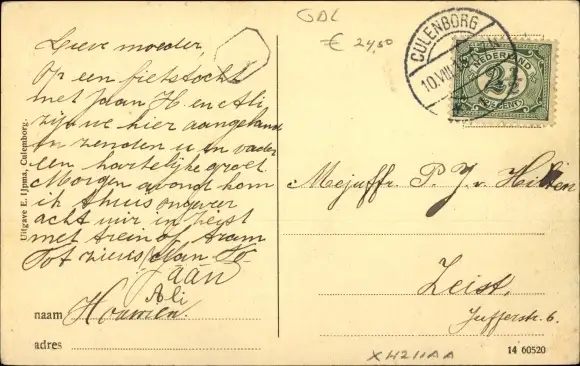 GDL
€ 24,50
CULENBORG
10.VIII
NEDERLAND
2½
CENT
Lieve moeder,
Op een fietstocht
met Jaan H en Ali
zijn we hier aangeland
en zenden u en vader
een hartelijke groet.
Morgen avond kom
ik thuis ongeveer
acht uur in Zeist
met trein of tram
Tot ziens
Jaan
Ali
naam
adres
Uitgave E. IJpma, Culemborg.
Mejuffr. P. J. v.
Zeist.
Jufferstr. 6.
XH211AA
14 60520